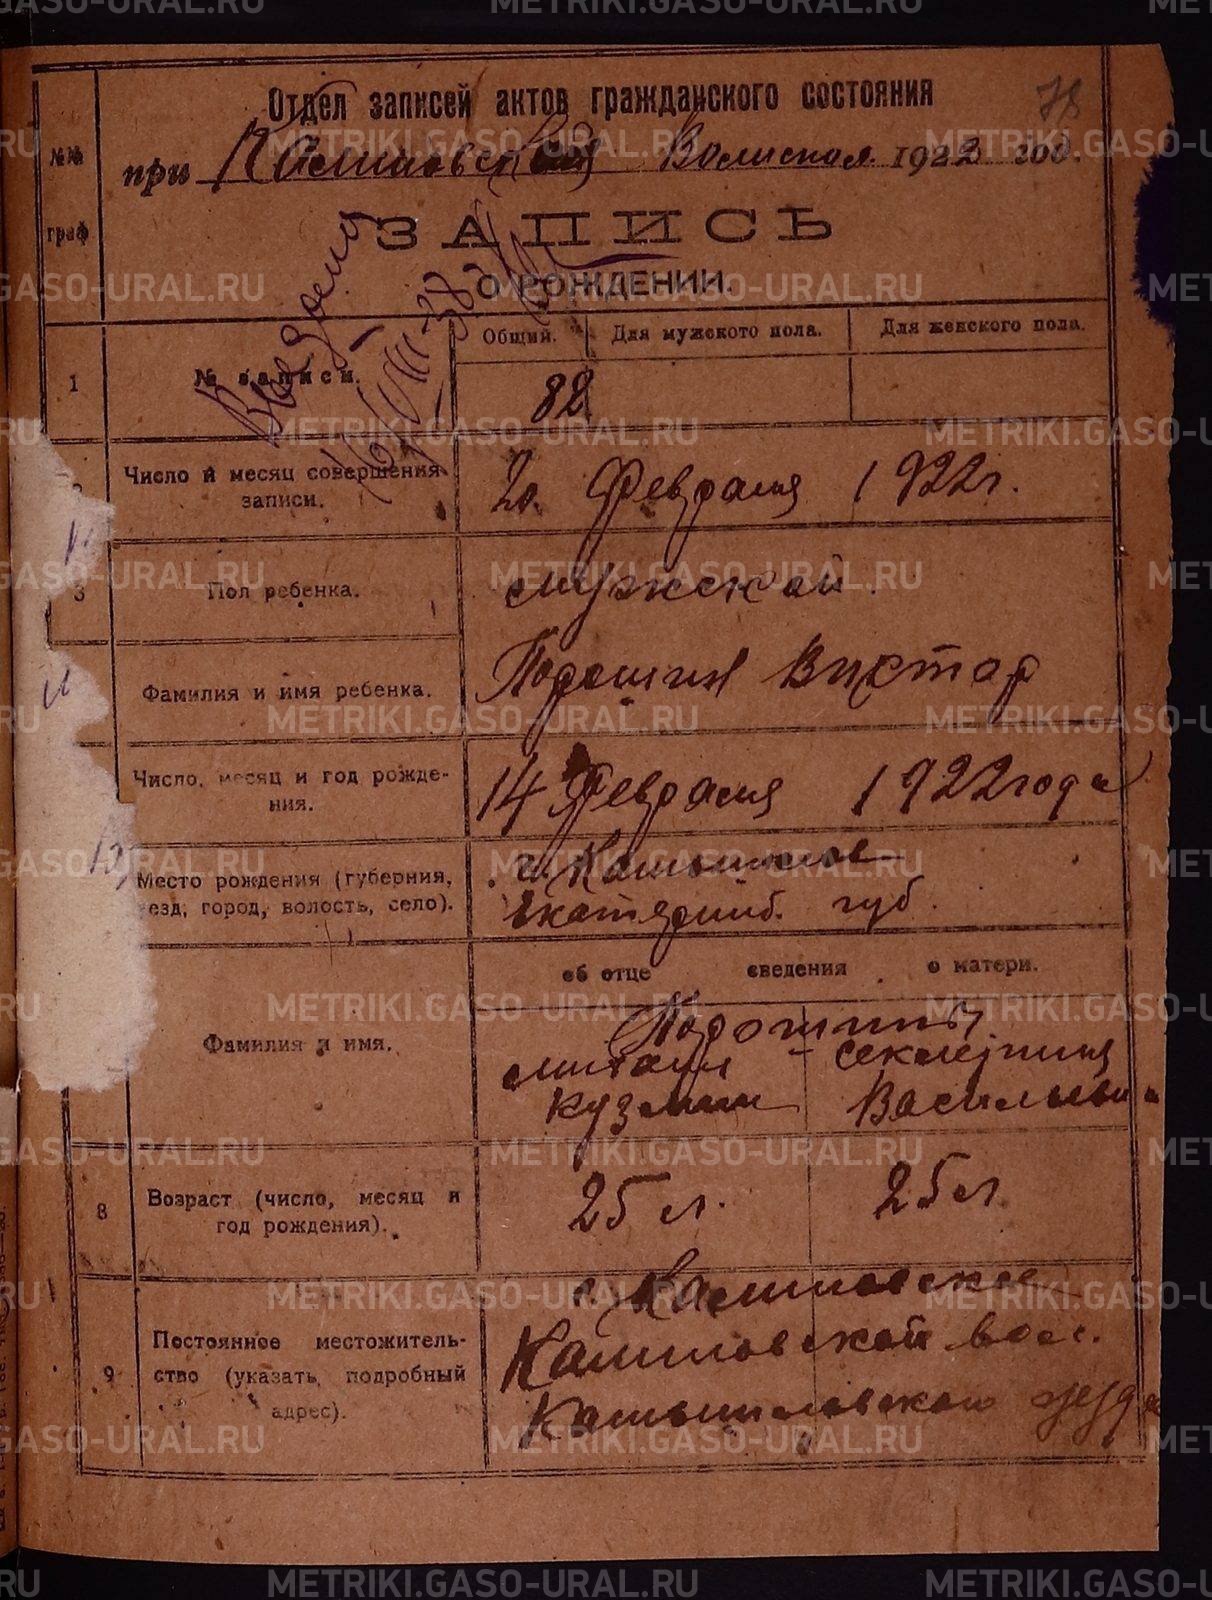 Отдел записей актов гражданского состояния
78
при Калиновской Волиской 1922 год.
№№ граф
ЗАПИСЬ
О РОЖДЕНИИ.
Общий. Для мужского пола. Для женского пола.
1 № записи. 82
Число и месяц совершения
записи.
20. Февраля 1922г.
3 Пол ребенка. мужской.
Фамилия и имя ребенка. Подошин Виктор
Число, месяц и год рожде-
ния.
14 Февраля 1922 года
Место рождения (губерния,
уезд, город, волость, село).
г. Камышлов
Екатеринб. губ.
об отце сведения о матери.
Фамилия и имя.
Подошины
Михаил
Кузмин
Секлетиния
Васильевна
8 Возраст (число, месяц и
год рождения).
25 л. 25 л
9 Постоянное местожитель-
ство (указать подробный
адрес).
с. Калиновское
Калиновской вол.
Камышловского уезда
METRIKI.GASO-URAL.RU